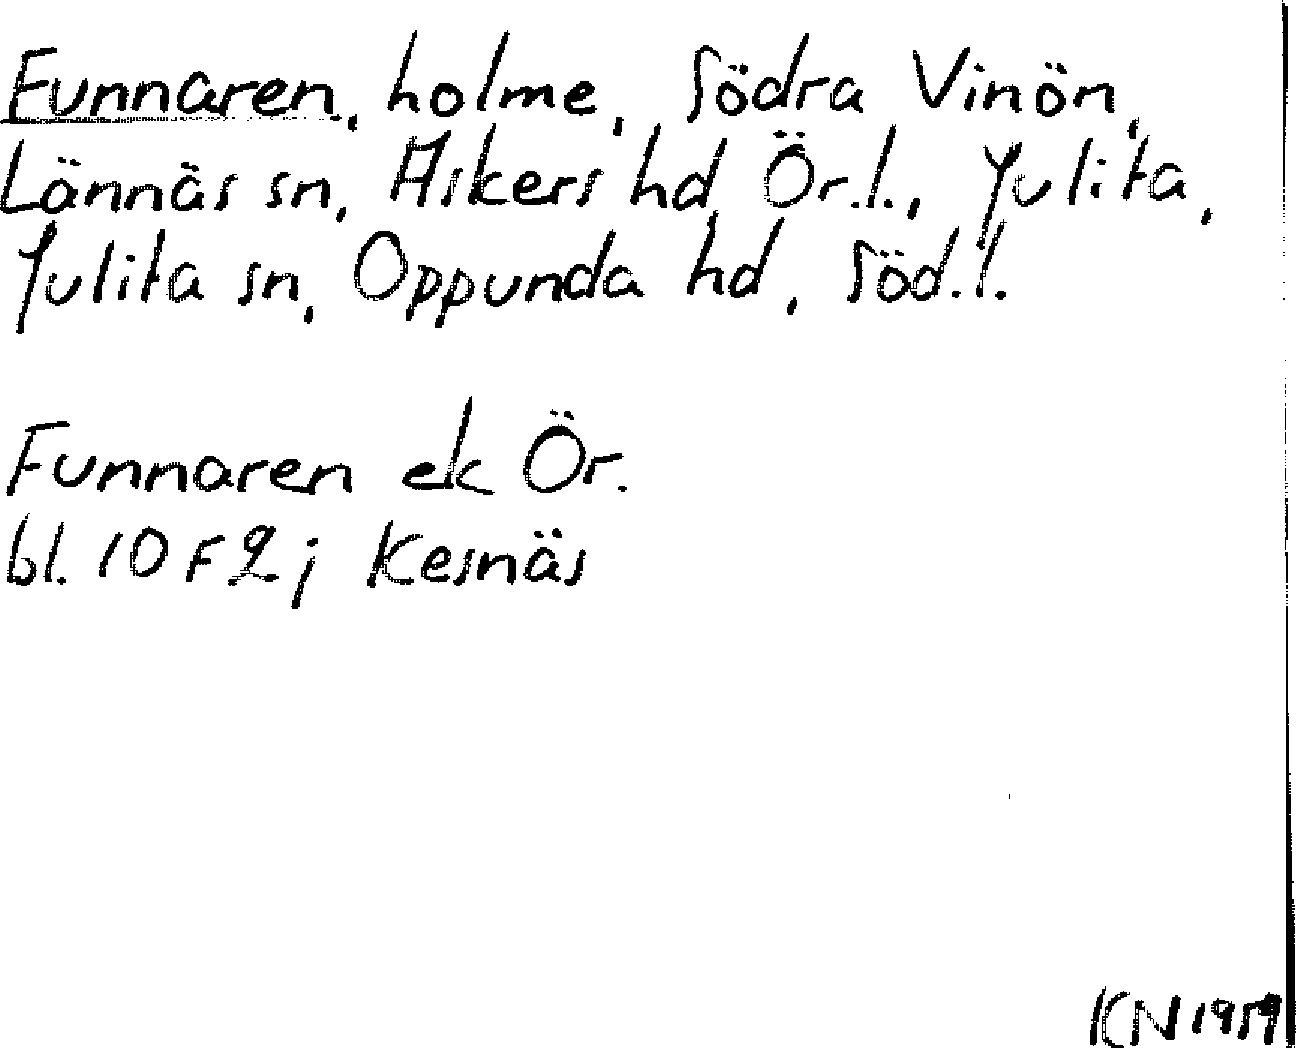 Funnaren, holme, Södra Vinön,
Lännäs sn, Askers hd, Ör.l., Julita,
Julita sn, Oppunda hd, Söd.l.
Funnaren ek Ör.
bl. 10 F 2 j Kesnäs
KN 1959